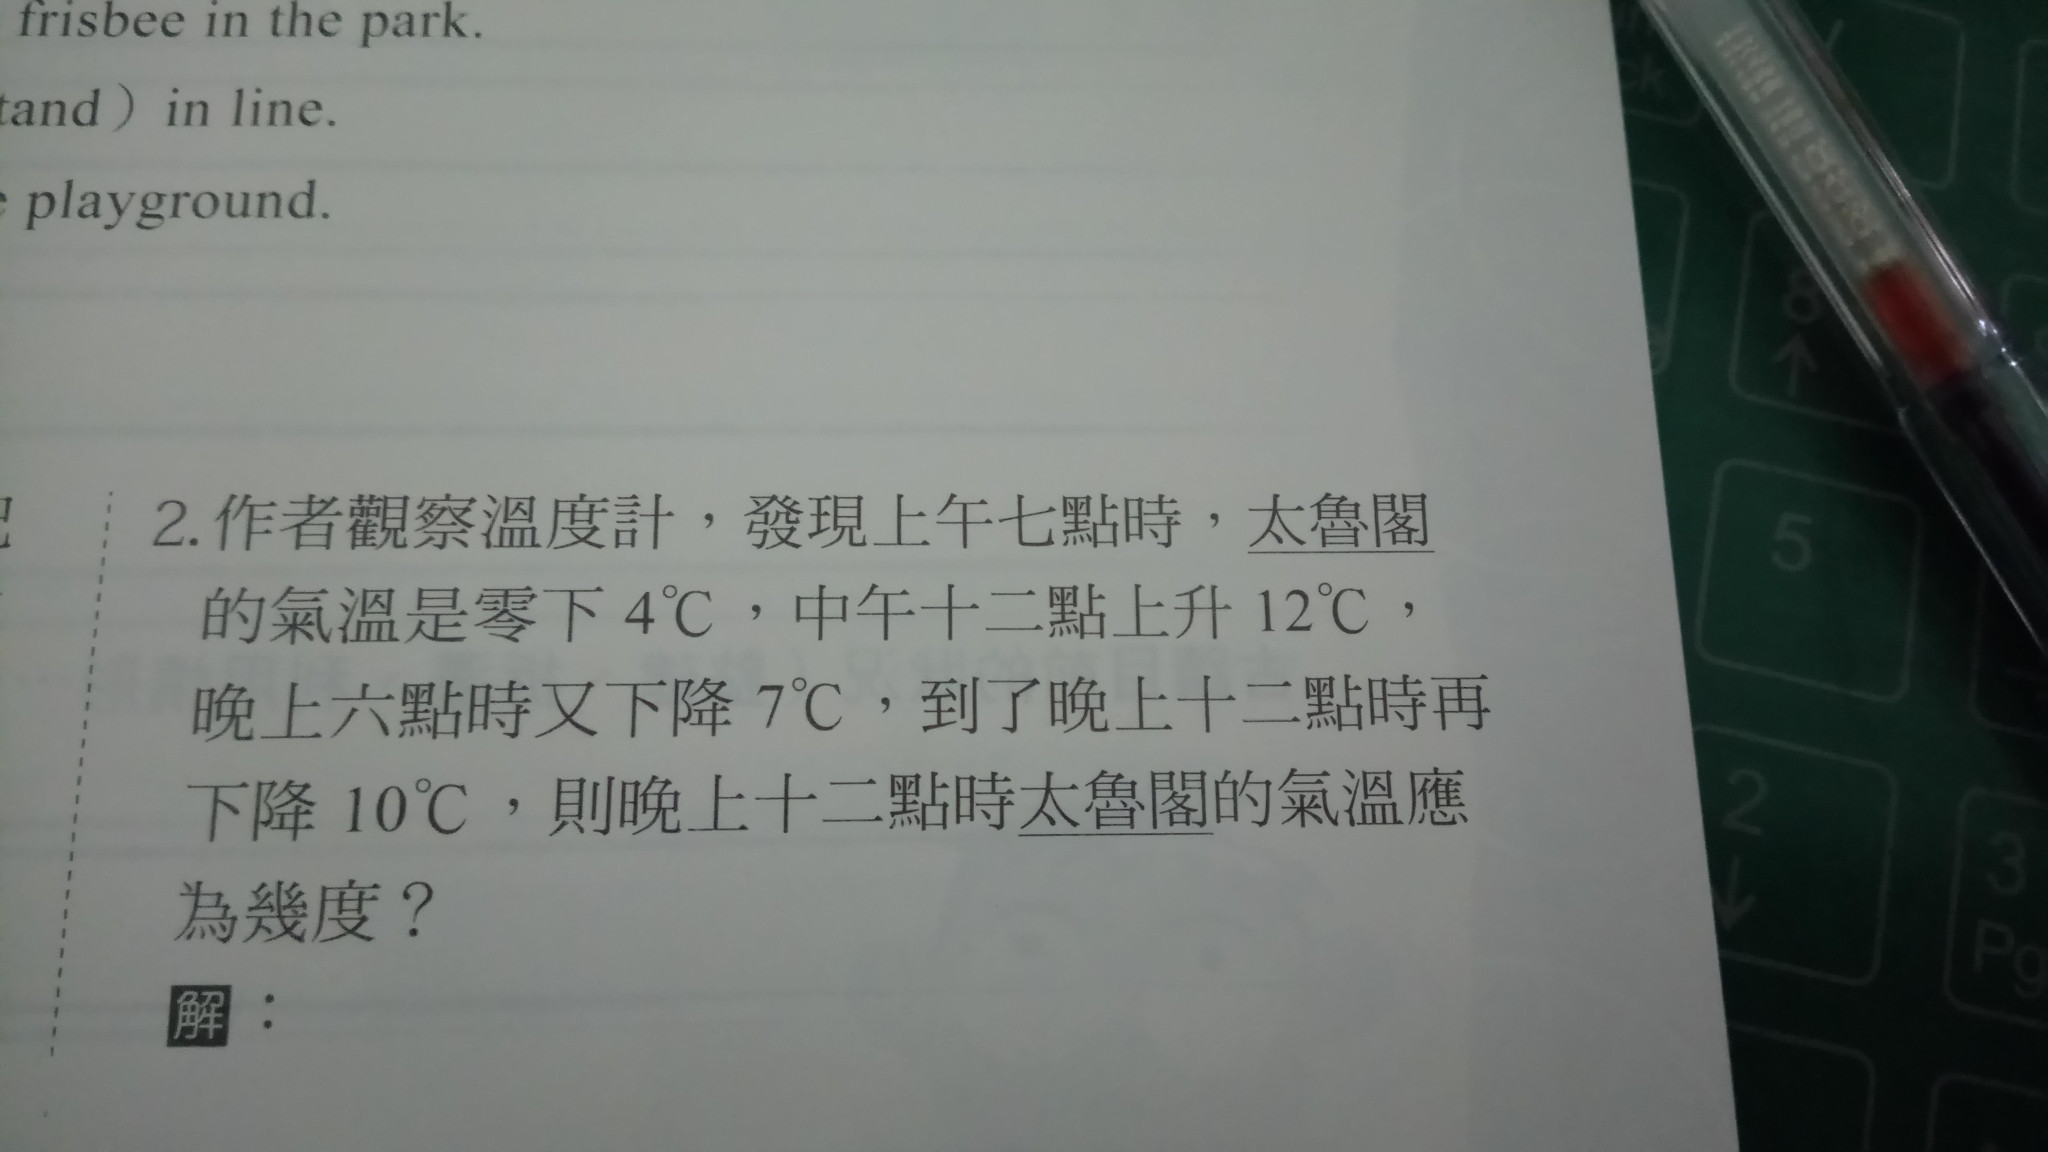 frisbee in the park.
tand) in line.
playground.
2.作者觀察溫度計，發現上午七點時，太魯閣
的氣溫是零下 4℃，中午十二點上升 12℃，
晚上六點時又下降 7℃，到了晚上十二點時再
下降 10℃，則晚上十二點時太魯閣的氣溫應
為幾度？
解：
8
↑
5
2
↓
3
Pg